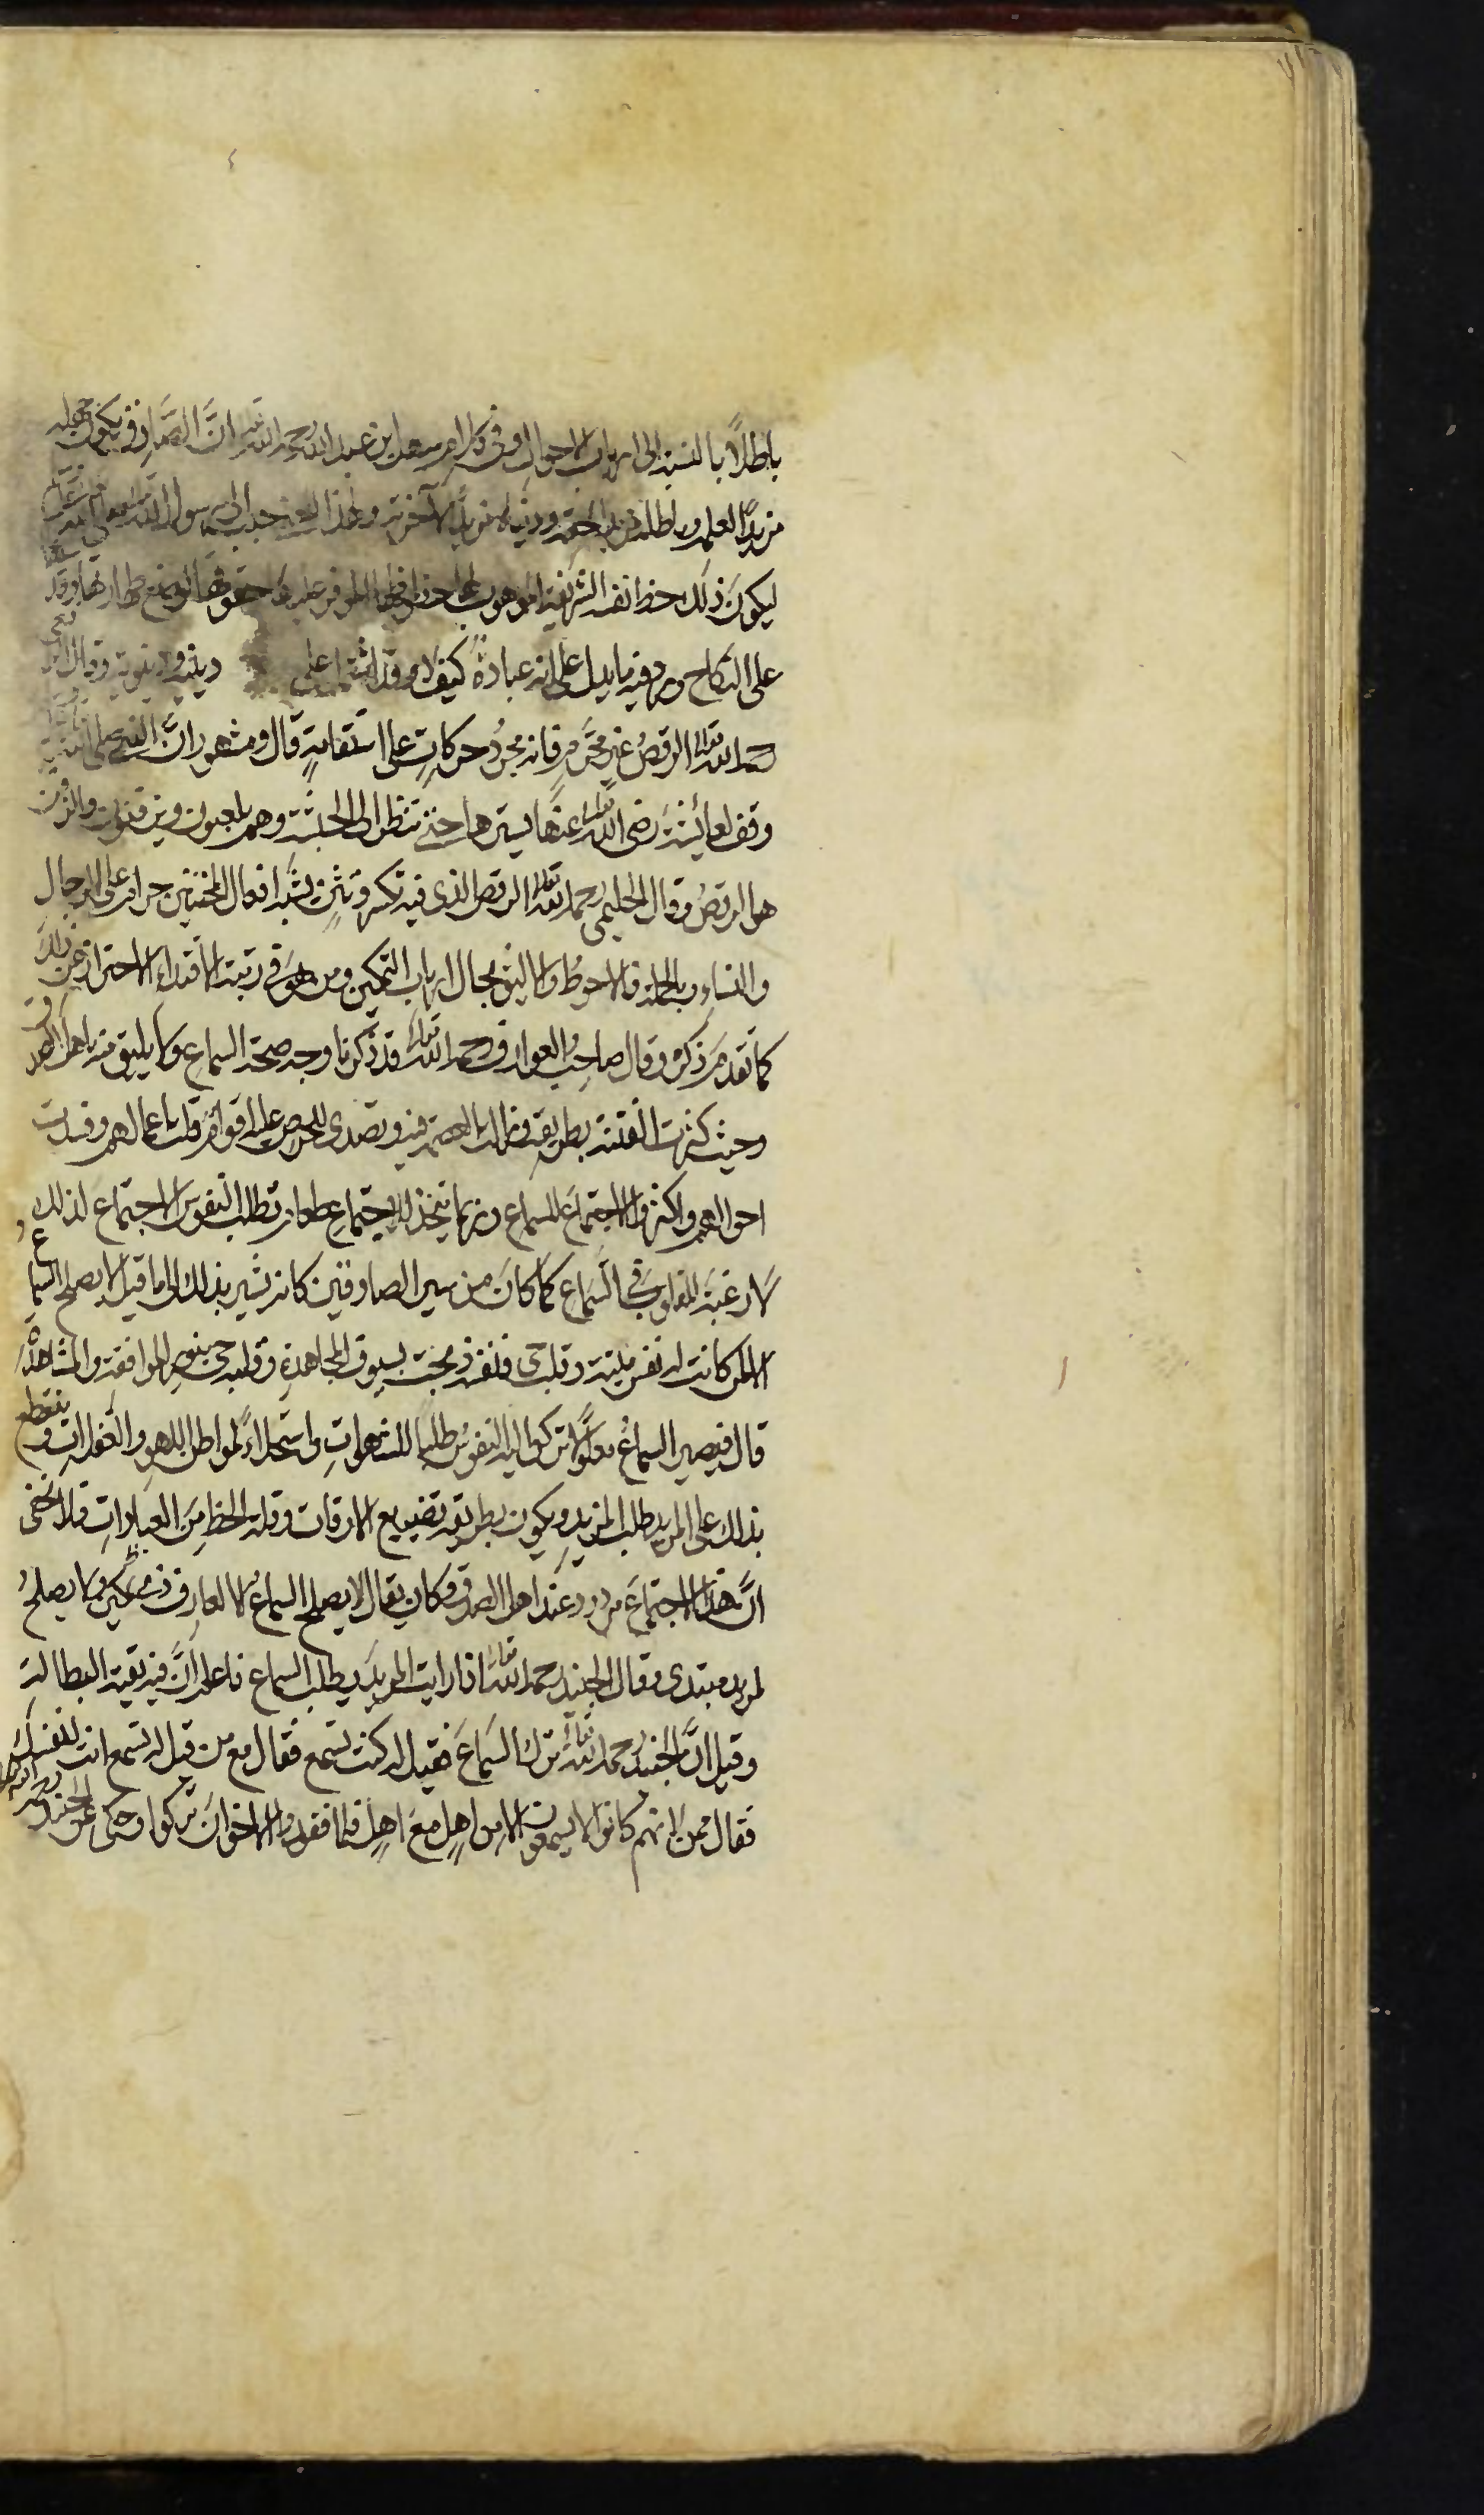 باطلاً بالنسبة الى ارباب الاحوال وفى كلام سهل ابن عبد الله رحمه الله تعالى انَّ الصَّادق يكون جهله
مزيدًا لعلمه وباطله مزيدًا لحقه ودنياه مزيدًا لآخرته ولهذا المعنى حبب الى رسول الله صلى الله عليه
ليكونَ ذلك حظ نفسه الشريفة الموهوب لها حظوظها الموفر عليها حقوقها لموضع طهارتها وقد
على النكاح وورد فيه ما يدل على انه عبادةٌ كيف لا وقد اشتمل على دينية ودنيوية وقال
رحمه الله تعالى الرقصُ غير محَرَّمٍ فانه مجردُ حركاتٍ على استقامةٍ قال ومشهور انَّ النبى صلى الله عليه
وقف لعائشةَ رضى الله تعالى عنها يسترها حتى تنظر الى الحبشة وهم يلعبون ويزفنون والزفن
هو الرقصُ وقال الحليمى رحمه الله تعالى الرقص الذى فيه تكسر وتثنٍ يشبه افعال المخنثين حرام على الرجالِ
والنساءِ وبالجملة فالاحوطُ والاليق بحال ارباب التمكين ومن هوَ فى رتبة الاقتداءِ الاحترازُ عن ذلك
كما تقدمَ ذكره وقال صاحبُ العوارف رحمه الله تعالى قد ذكرنا وجه صحة السماع وما يليق منه باهل الصدق
وحيث كثرت الفتنة بطريقه وزالت العصمة فيه وتصدى للحرص عليه اقوامٌ قلت اعمالهم وفسدت
احوالهم واكثروا الاجتماعَ للسماع وربما يتخذ للاجتماع طعام تطلب النفوس الاجتماعَ لذلك
لا رغبةَ القلوب فى السَّمَاع كما كانَ من سير الصادقين كانه يشير بذلك الى ما قيل لا يصلح السماع
الا لمن كانت له نفس ميتة وقلب حى فنفسه ذبحت بسيوف المجاهدةِ وقلبه حى بنور الموافقة والمشاهدة
قال فيصير السماعُ معلولاً تركن اليه النفوسُ طلبًا للشهواتِ واستحلاءً لمواطن اللهو والغفلات وينقطع
بذلك على المريد طلب المزيدِ ويكون بطريقه تضييع الاوقات وقلة الحظ مِنَ العبادات فلا يخفى
انَّ هذا الاجتماعَ مردود عند اهل الصدق وكان يقال لا يصلح السماعُ الا لعارفٍ مكين ولا يصلحُ
لمريد مبتدى وقال الجنيد رحمه الله تعالى اذا رايت المريدَ يطلب السماع فاعلم انَّ فيه بقية البطالة
وقيل انَّ الجنيد رحمه الله تعالى ترك السَّمَاعَ فقيل له كنت تسمع فقال مع من قيل له تسمع انت لنفسك
فقال ممن لانهم كانوا لا يسمعون الا من اهلٍ مع اهلٍ فلما فقدوا الاخوانَ تركوا وحكى عن الجنيد